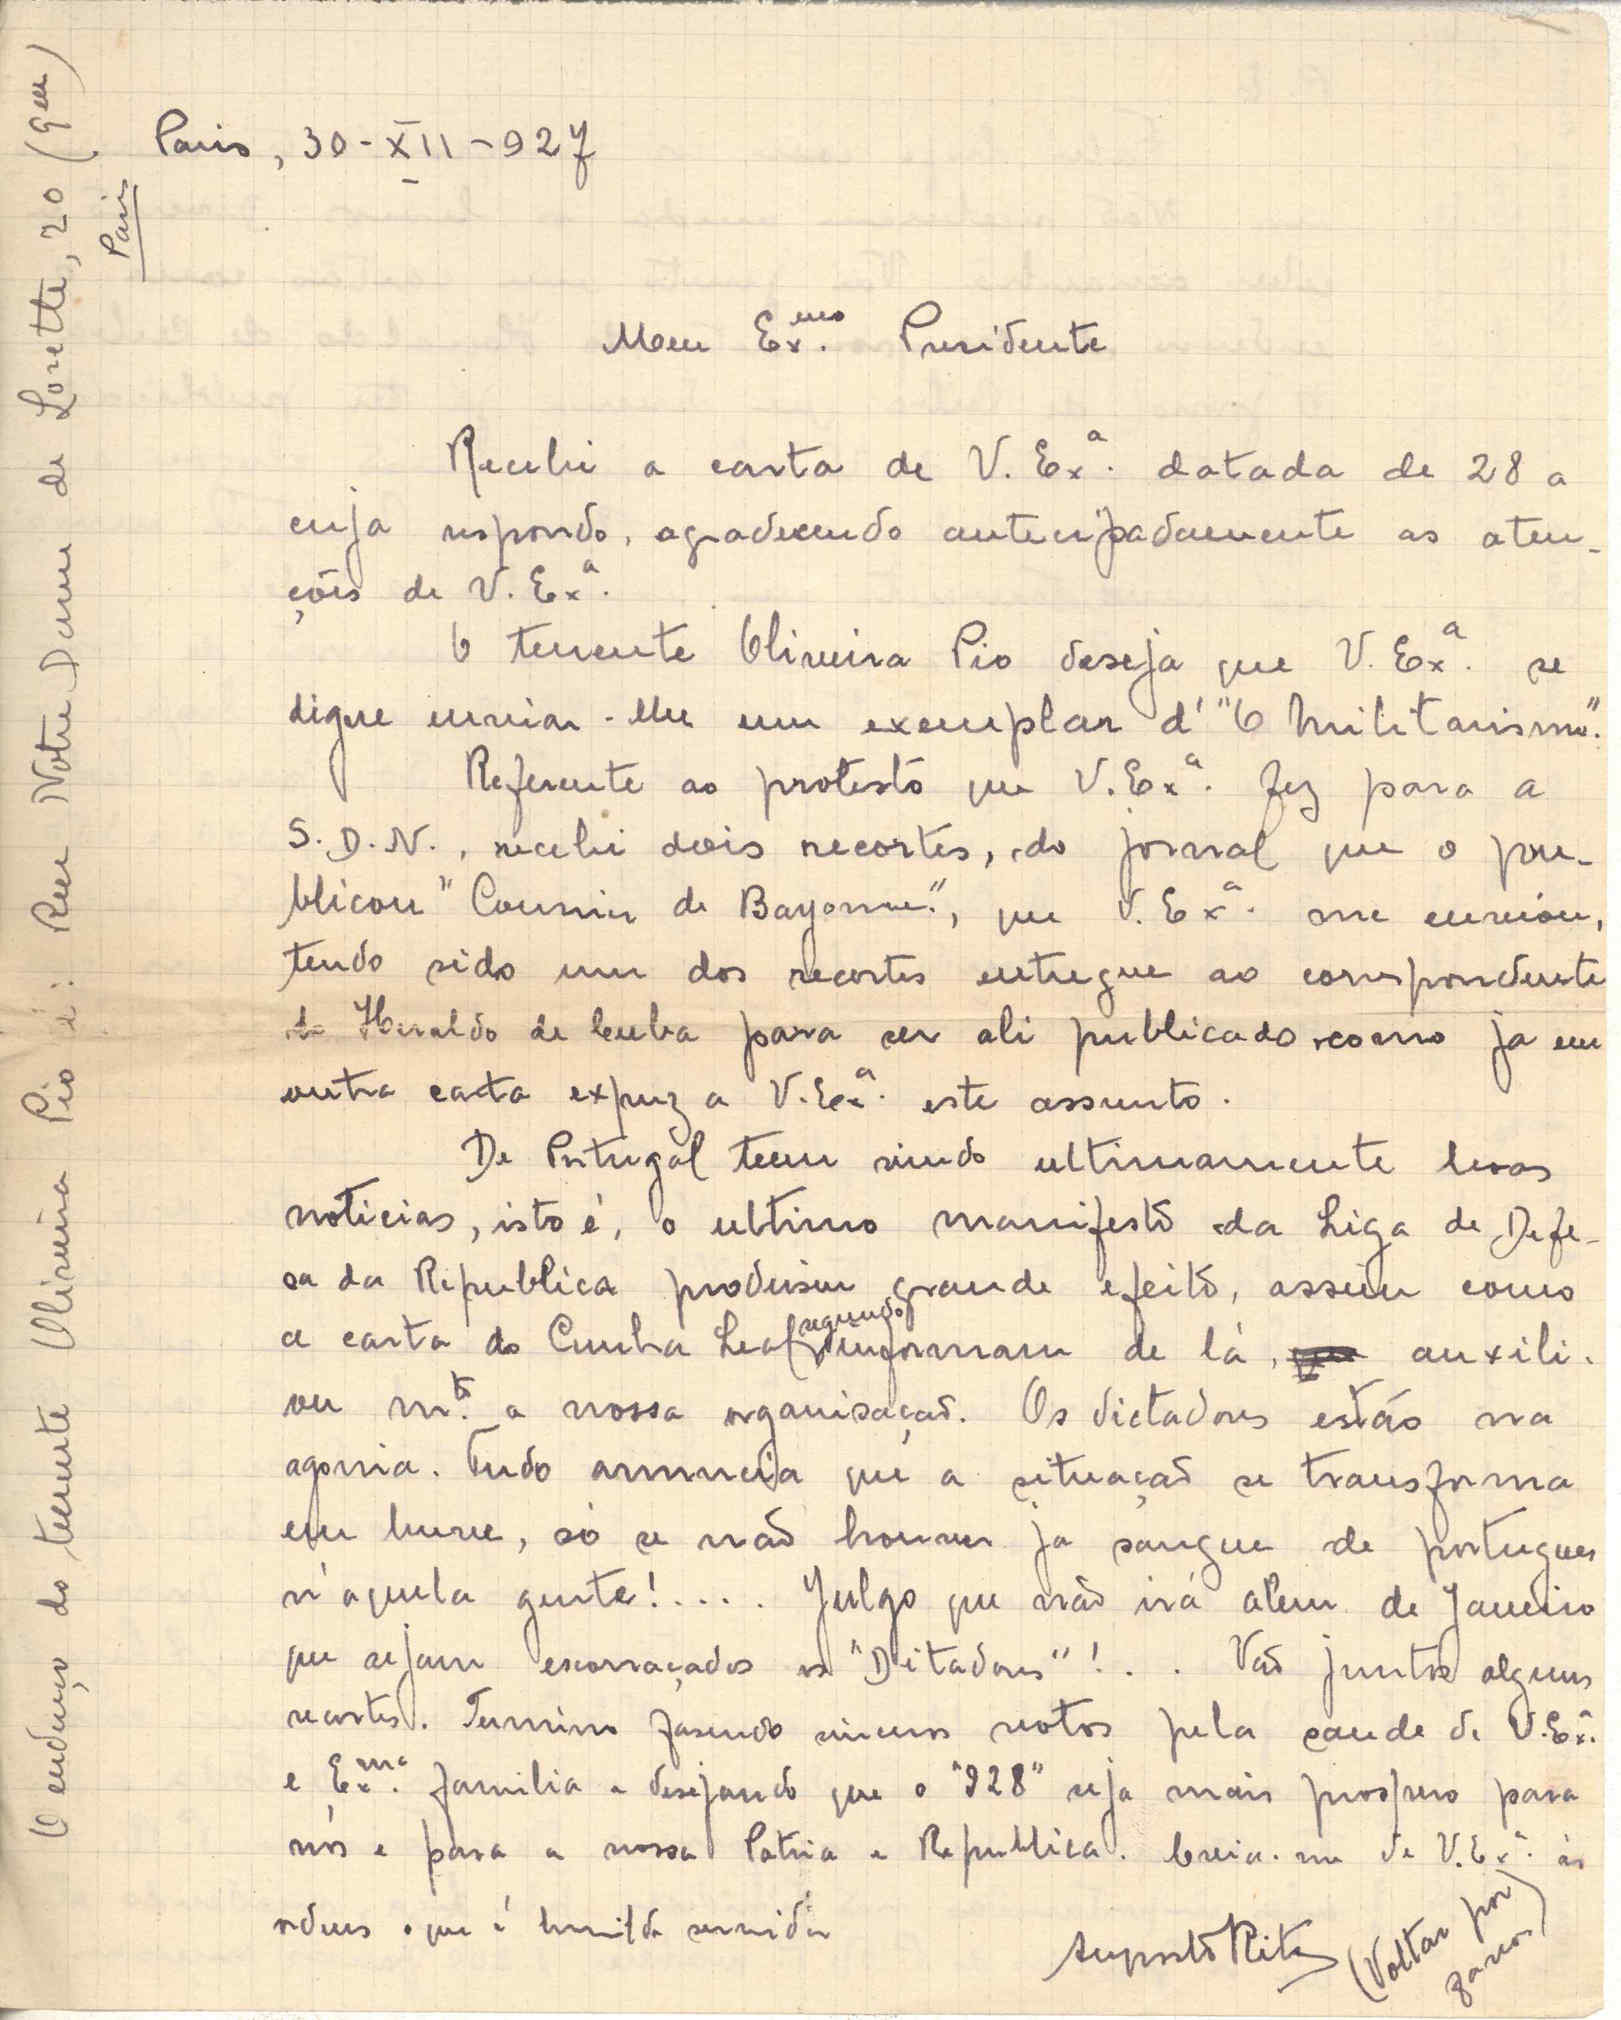 Paris, 30-XII-927
Meu Ex.mo Presidente
Recebi a carta de V. Ex.a datada de 28 a
cuja respondo, agradecendo antecipadamente as aten-
ções de V. Ex.a
O tenente Oliveira Pio deseja que V. Ex.a se
digne enviar-lhe um exemplar d' "O Militarismo".
Referente ao protesto que V. Ex.a fez para a
S.D.N., recebi dois recortes, do jornal que o pu-
blicou "Courrier de Bayonne", que V. Ex.a me enviou,
tendo sido um dos recortes entregue ao correspondente
do Heraldo de Cuba para ser ali publicado, como ja em
outra carta expuz a V. Ex.a este assunto.
De Portugal teem vindo ultimamente boas
noticias, isto é, o ultimo manifesto da Liga de Defe-
sa da Republica produsiu grande efeito, assim como
a carta do Cunha Leal, segundo informam de lá, auxili-
ou m.to a nossa organisação. Os dictadores estão na
agonia. Tudo anuncia que a situação se transforma
em breve, só se não houver ja sangue de portugues
n'aquela gente!.... Julgo que não irá alem de Janeiro
que sejam escorraçados os "Ditadores"!... Vão juntos alguns
recortes. Termino fasendo sinceros votos pela saude de V. Ex.a
e Ex.ma familia e desejando que o "928" seja mais prospero para
nós e para a nossa Patria e Republica. Creia-me de V. Ex.a ás
ordens o que é humilde servidor
Augusto Rita
(Voltar por favor)
O endereço do tenente Oliveira Pio é: Rue Notre Dame de Lorette, 20 (9em)
Paris